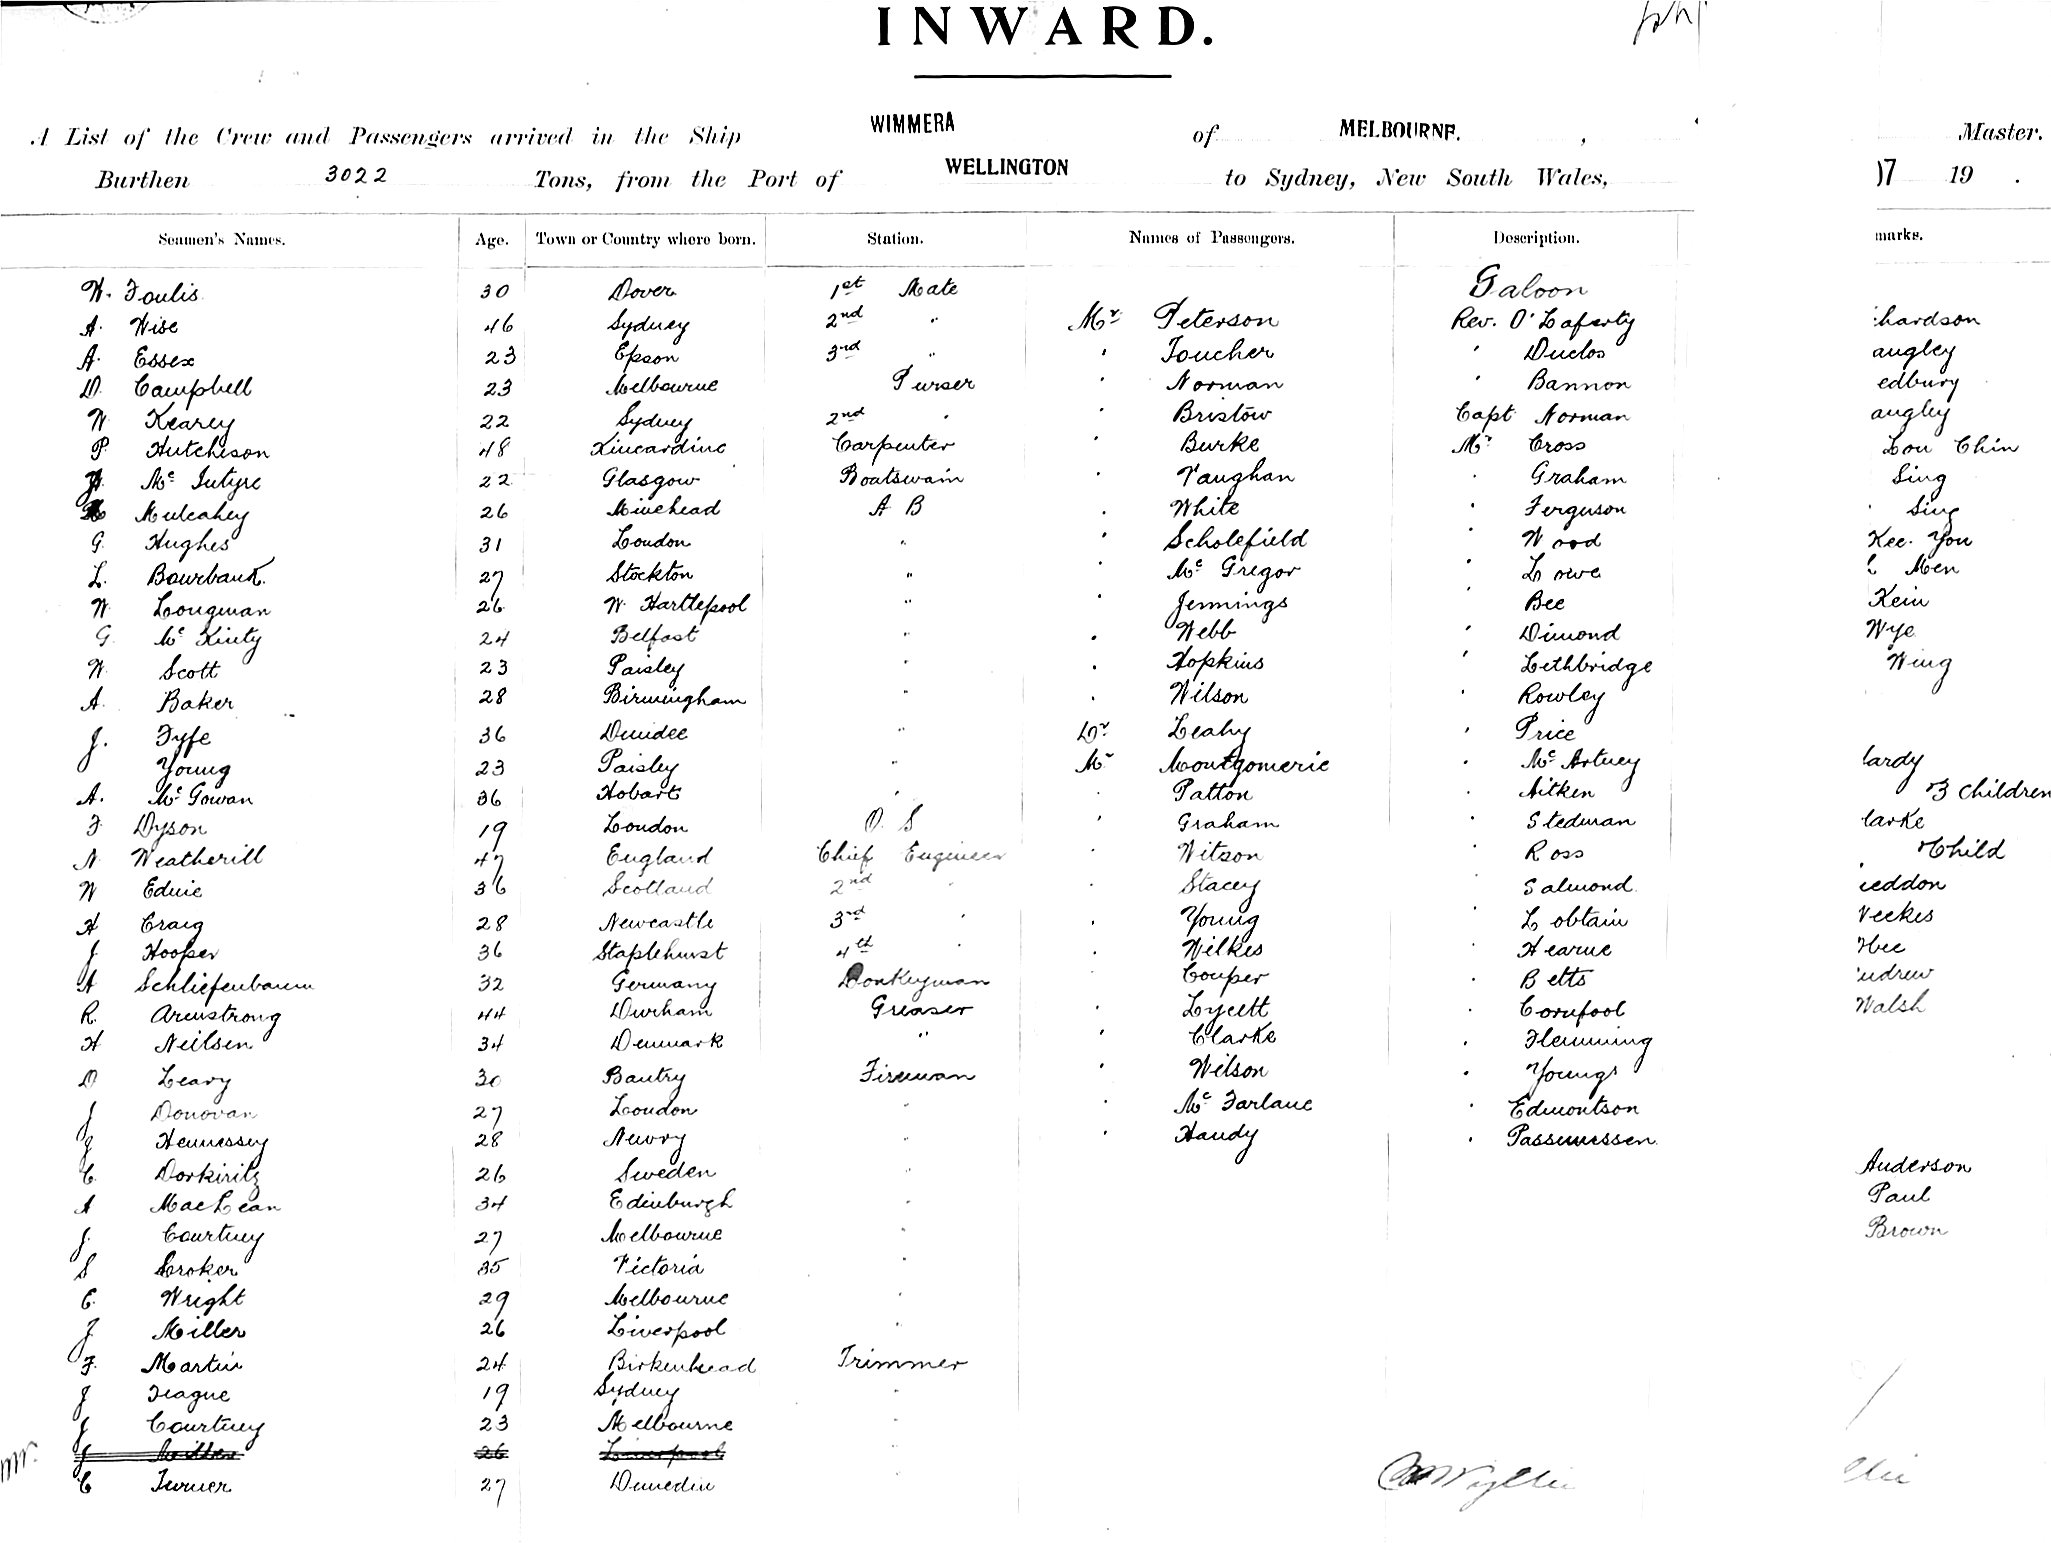 INWARD.
A List of the Crew and Passengers arrived in the Ship WIMMERA of MELBOURNE. , Master.
Burthen 3022 Tons, from the Port of WELLINGTON to Sydney, New South Wales, 07 19 .
Seamen's Names. Age. Town or Country where born. Station. Names of Passengers. Description. marks.
W. Foulis 30 Dover 1st Mate Saloon
A. Wise 46 Sydney 2nd " Mr. Peterson Rev. O'Laferty hardson
A. Essex 23 Epson 3rd " ' Toucher ' Duclos angley
D. Campbell 23 Melbourne Purser ' Norman ' Bannon edbury
W Kearey 22 Sydney 2nd " ' Bristow Capt Norman angley
P. Hutcheson 48 Kincardine Carpenter ' Burke Mr Cross Lou Chin
Mc Intyre 22 Glasgow Boatswain ' Vaughan ' Graham Sing
Mulcahey 26 Minehead A B ' White ' Ferguson ' Sing
G. Hughes 31 London " ' Scholefield ' Wood Kee. You
L. Bowbank. 27 Stockton " ' Mc Gregor ' Lowe Men
W. Longman 26 W. Hartlepool " ' Jennings ' Bee Kein
G. Mc Kinty 24 Belfast " ' Webb ' Dimond Wye
W. Scott 23 Paisley " ' Hopkins ' Lethbridge Wing
A. Baker 28 Birmingham " ' Wilson ' Rowley
J. Fyfe 36 Dundee " Dr Leahy ' Price
Young 23 Paisley " Mr Montgomerie ' Mc Artney ardy
A. Mc Gowan 36 Hobart " ' Patton ' Aitken 3 Children
F Dyson 19 London O. S ' Graham ' Stedman larke
N. Weatherill 47 England Chief Engineer ' Witson ' Ross Child
W Ednie 36 Scotland 2nd " ' Stacey ' Salmond eddon
H Craig 28 Newcastle 3rd " ' Young ' Lobtain Weekes
J. Hooper 36 Staplehurst 4th " ' Wilkes ' Hearne Hee
A Schliefenbaum 32 Germany Donkeyman ' Couper ' Betts ndrew
R. Armstrong 44 Durham Greaser ' Lycett ' Cornfool Walsh
H Neilsen 34 Denmark " ' Clarke ' Flemming
D Leary 30 Bantry Fireman ' Wilson ' Youngs
J Donovan 27 London " ' Mc Farlane ' Edmontson
J Hennessey 28 Newry " ' Handy ' Passmessen
C. Dorkiritz 26 Sweden " Anderson
A MacLean 34 Edinburgh " Paul
J. Courtney 27 Melbourne " Brown
S Croker 35 Victoria "
C. Wright 29 Melbourne "
J Miller 26 Liverpool "
F. Martin 24 Birkenhead Trimmer
J Teague 19 Sydney "
J Courtney 23 Melbourne "
J Miller 26 Liverpool "
C Turner 27 Dunedin
Wyllie llie